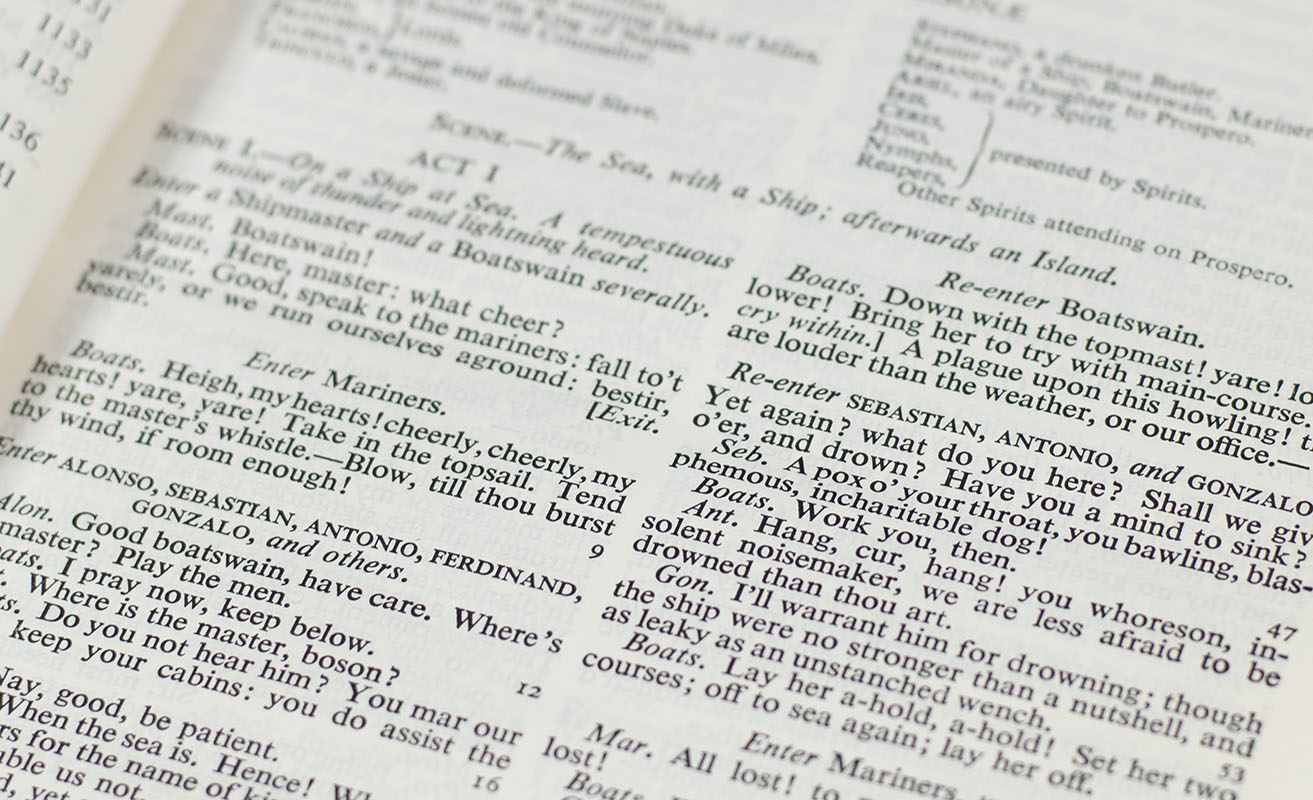 1133
1135
136
41
Duke of Milan,
King of Naples.
Lords.
Counsellor.
a savage and deformed Slave.
a drunken Butler.
Master of a Ship, Boatswain, Mariners.
MIRANDA, Daughter to Prospero.
ARIEL, an airy Spirit.
IRIS,
CERES,
JUNO,
Nymphs,
Reapers,
presented by Spirits.
Other Spirits attending on Prospero.
SCENE.—The Sea, with a Ship; afterwards an Island.
ACT I
SCENE I.—On a Ship at Sea. A tempestuous
noise of thunder and lightning heard.
Enter a Shipmaster and a Boatswain severally.
Mast. Boatswain!
Boats. Here, master: what cheer?
Mast. Good, speak to the mariners: fall to't
yarely, or we run ourselves aground: bestir,
bestir. [Exit.
Enter Mariners.
Boats. Heigh, my hearts! cheerly, cheerly, my
hearts! yare, yare! Take in the topsail. Tend
to the master's whistle.—Blow, till thou burst
thy wind, if room enough! 9
Enter ALONSO, SEBASTIAN, ANTONIO, FERDINAND,
GONZALO, and others.
Alon. Good boatswain, have care. Where's
master? Play the men.
I pray now, keep below.
Where is the master, boson?
Do you not hear him? You mar our
keep your cabins: you do assist the
12
good, be patient.
When the sea is. Hence!
for the name of
us not.
yet
16
Re-enter Boatswain.
Boats. Down with the topmast! yare!
lower! Bring her to try with main-course.
cry within.] A plague upon this howling!
are louder than the weather, or our office.—
Re-enter SEBASTIAN, ANTONIO, and GONZALO
Yet again? what do you here? Shall we
o'er, and drown? Have you a mind to sink?
Seb. A pox o' your throat, you bawling, blas-
phemous, incharitable dog!
Boats. Work you, then.
Ant. Hang, cur, hang! you whoreson, in-
solent noisemaker, we are less afraid to be
drowned than thou art. 47
Gon. I'll warrant him for drowning; though
the ship were no stronger than a nutshell, and
as leaky as an unstanched wench.
Boats. Lay her a-hold, a-hold! Set her two
courses; off to sea again; lay her off. 53
Enter Mariners,
Mar. All lost! to
lost!
Boats.